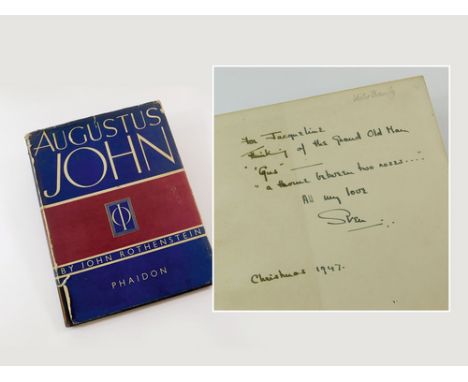 AUGUSTUS
JOHN
BY JOHN ROTHENSTEIN
PHAIDON
for Jacqueline
thinking of the Grand Old Man
"Gus" —
"a thorne between two roses...."
All my love
Sven
Christmas 1947.